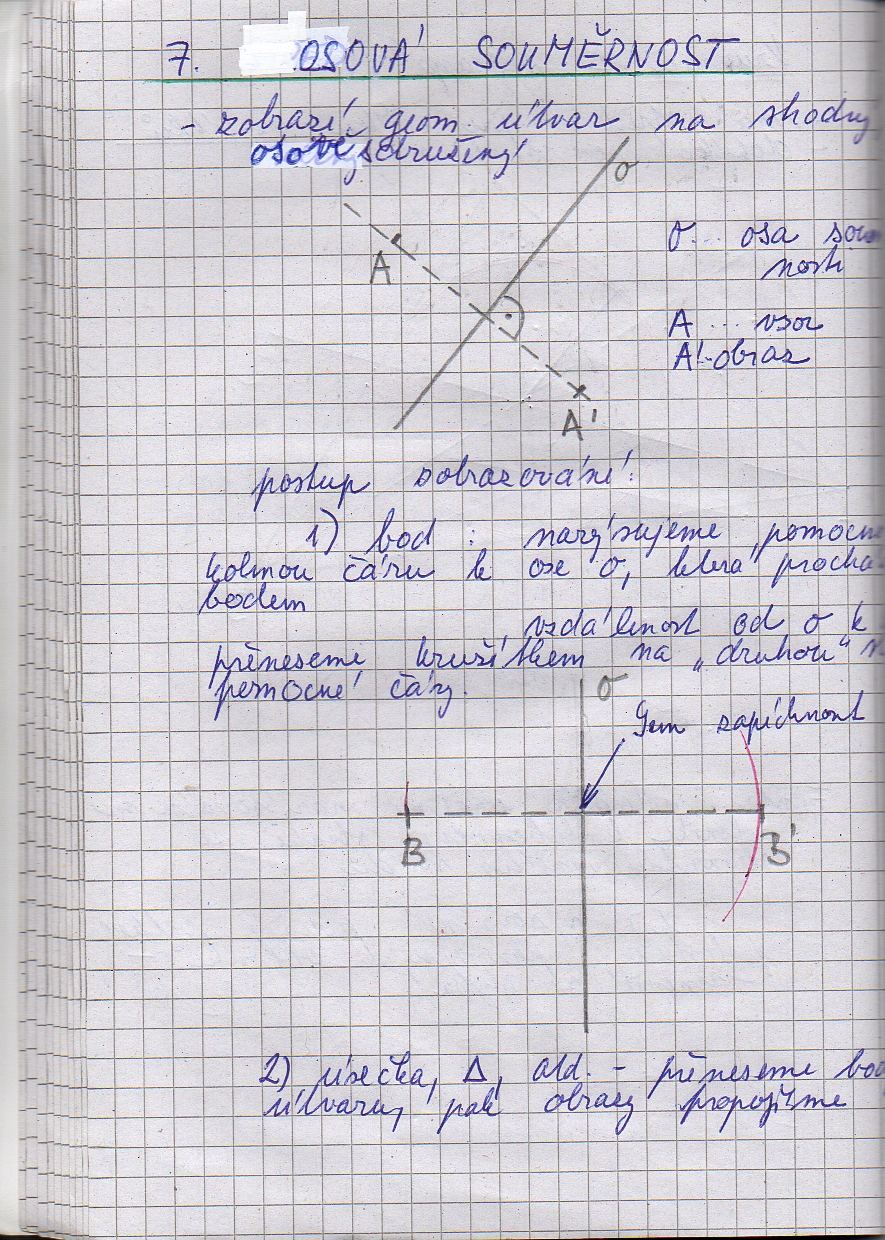 7. OSOVÁ SOUMĚRNOST
- zobrazí geom. útvar na shodný
osově sdružený
o
o... osa soum
nosti
A
A ... vzor
A'..obraz
A'
postup zobrazování:
1) bod : narýsujeme pomocn
kolmou čáru k ose o, která prochá
bodem
vzdálenost od o k
přeneseme kružítkem na „druhou“
pomocné čáry.
o
Sem zapíchnout
B
B'
2) úsečka, Δ, atd. - přeneseme bod
útvaru, pak obrazy propojíme